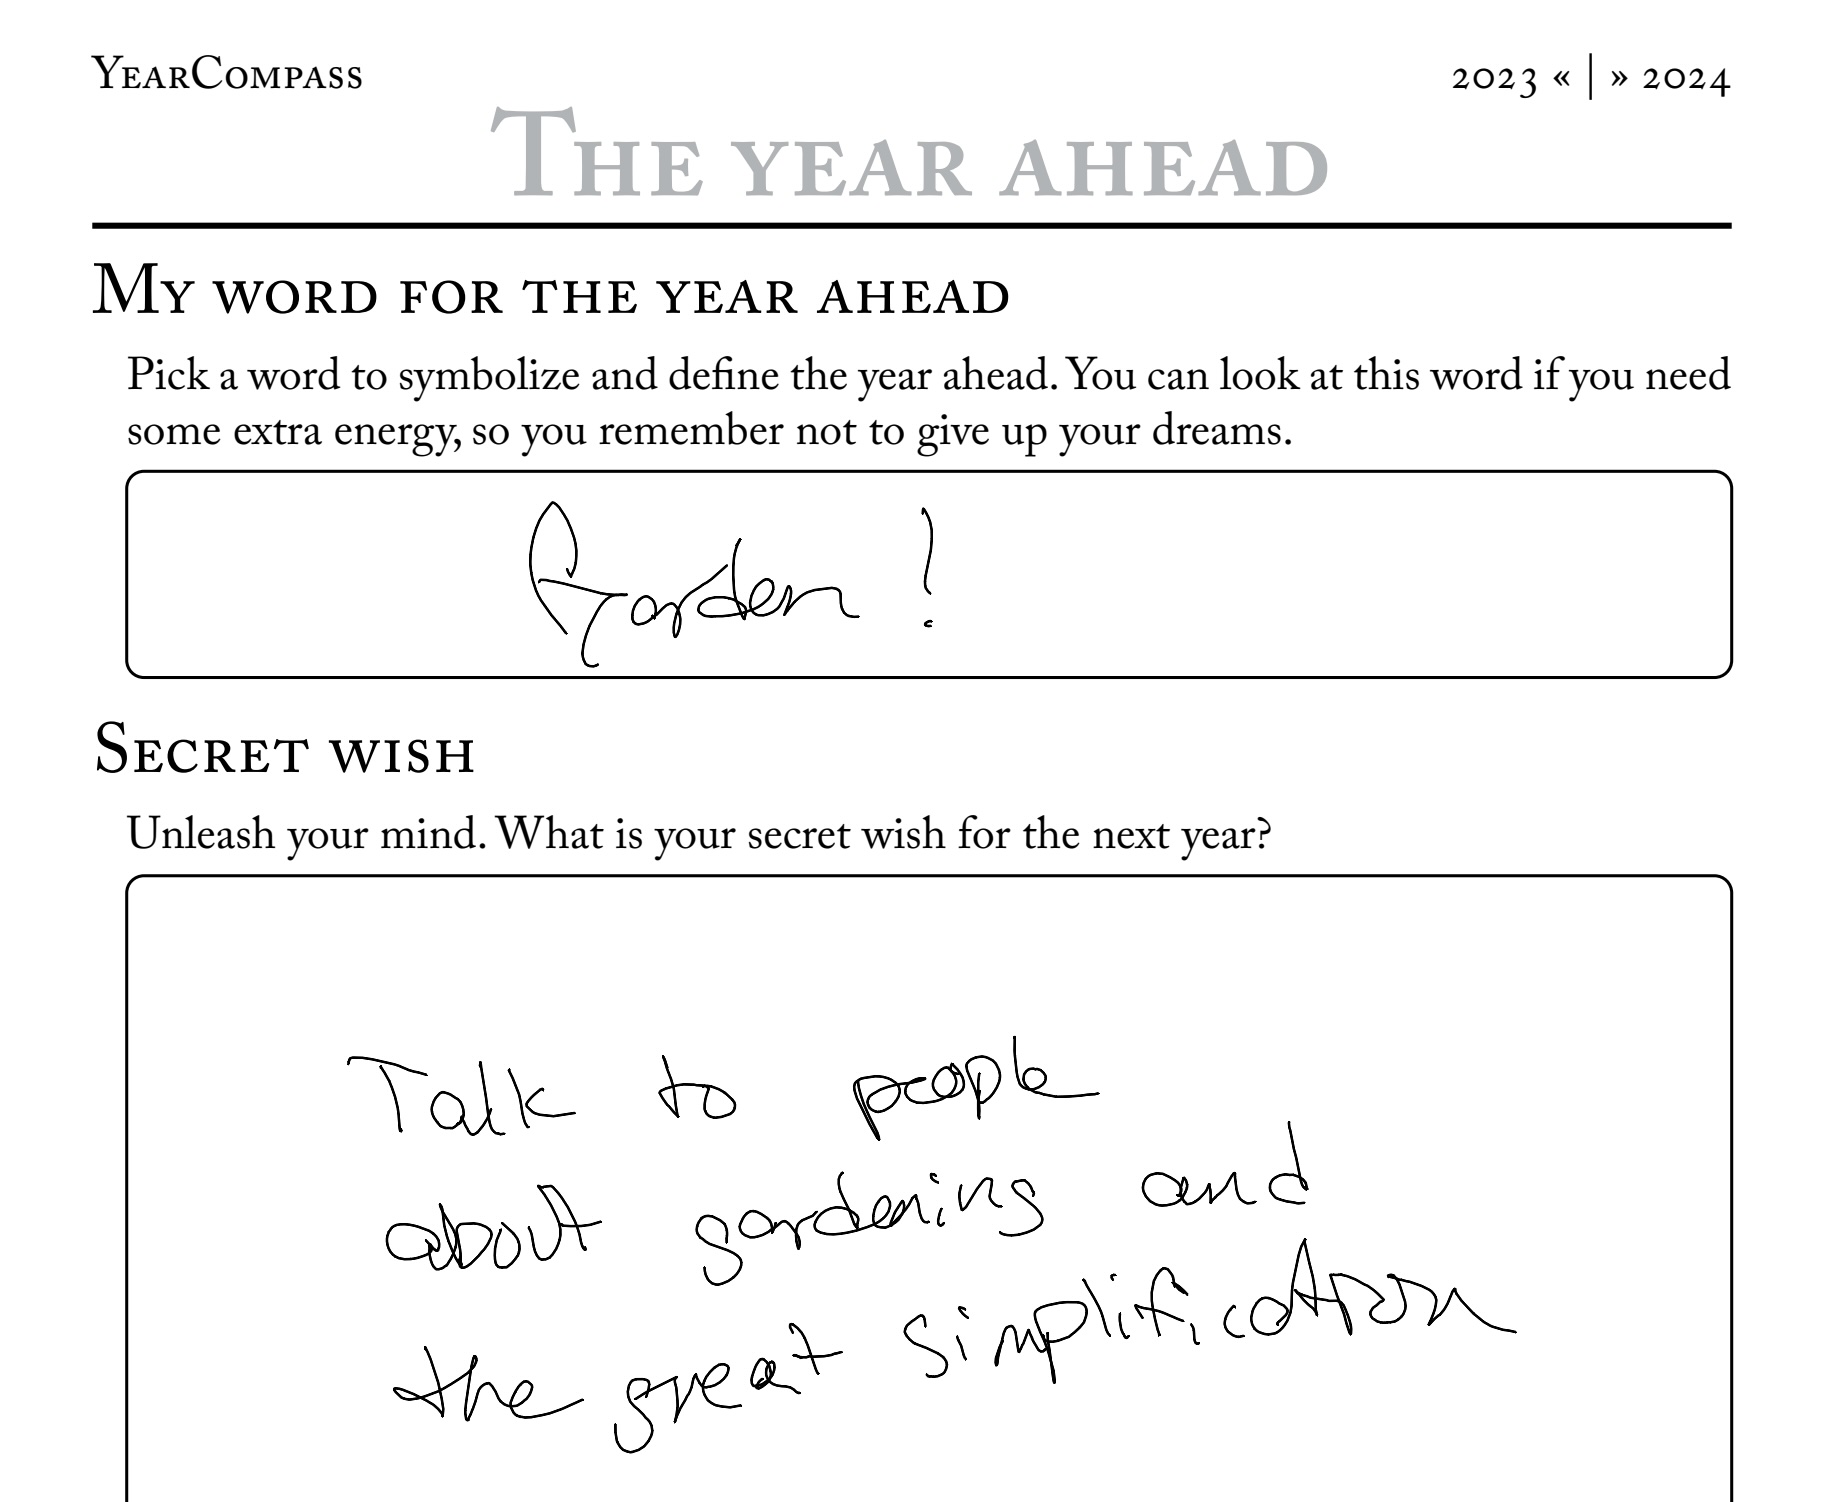 YearCompass
2023 « | » 2024
The year ahead
My word for the year ahead
Pick a word to symbolize and define the year ahead. You can look at this word if you need
some extra energy, so you remember not to give up your dreams.
Garden !
Secret wish
Unleash your mind. What is your secret wish for the next year?
Talk to people
about gardening and
the great simplification